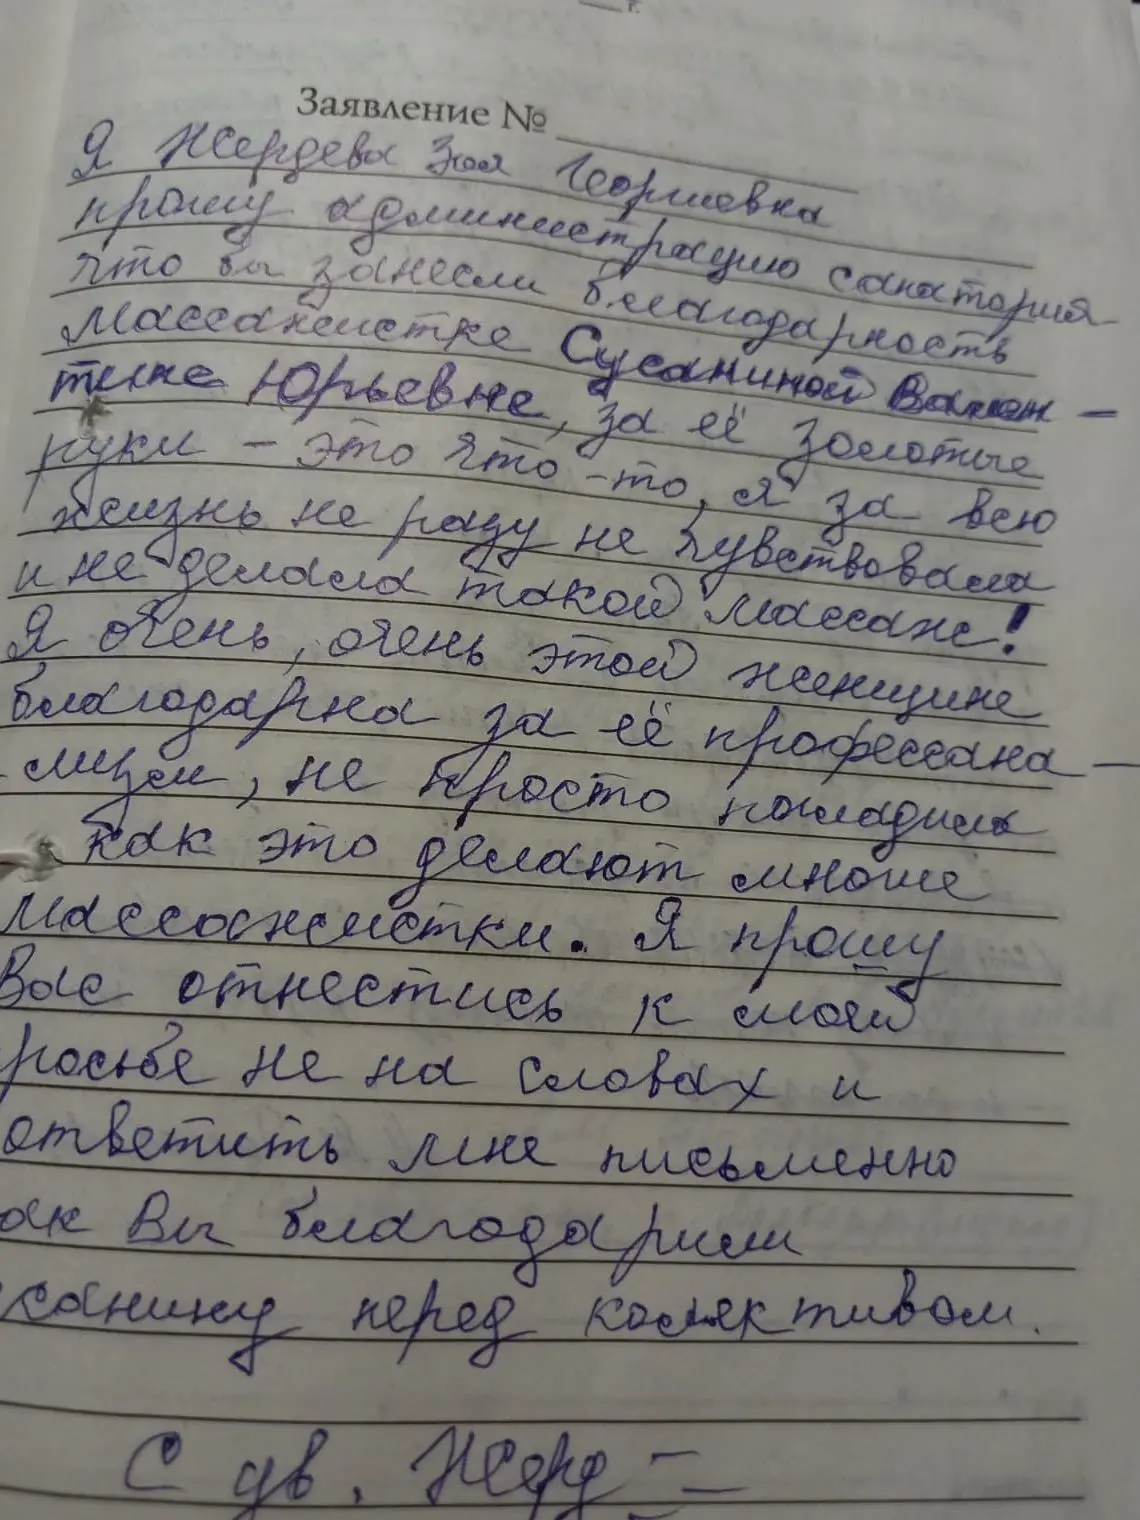 г.
Заявление №
Я Жердева Зоя Георгиевна
прошу администрацию санатория
что бы занесли благодарность
массажистке Сусаниной Вален-
тине Юрьевне, за её золотые
руки - это что-то, я за всю
жизнь не разу не чувствовала
и не делала такой массаж!
Я очень, очень этой женщине
благодарна за её профессана-
лизм, не просто погладила
как это делают многие
массожистки. Я прошу
Вас отнестись к моей
росьбе не на словах и
ответить мне письменно
ак Вы благодарили
санину перед колективом.
С ув. Жерд